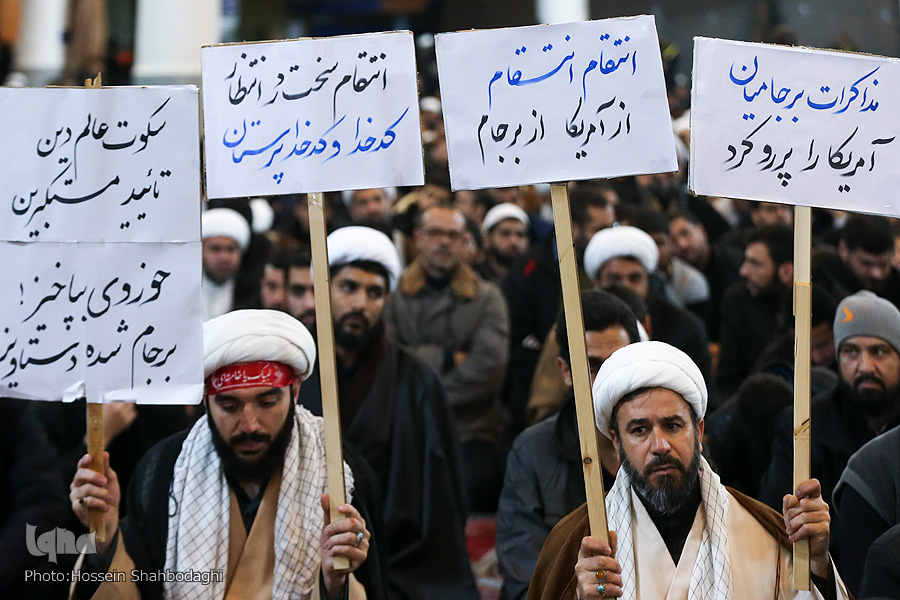 سکوت عالم دین
تائید مستکبرین
حوزوی بپاخیز!
برجام شده دستاویز
انتقام سخت در انتظار
کدخدا و کدخداپرستان
انتقام انتقام
از آمریکا از برجام
مذاکرات برجامیان
آمریکا را پررو کرد
لبیک یا خامنه‌ای
iqna
Photo:Hossein Shahbodaghi